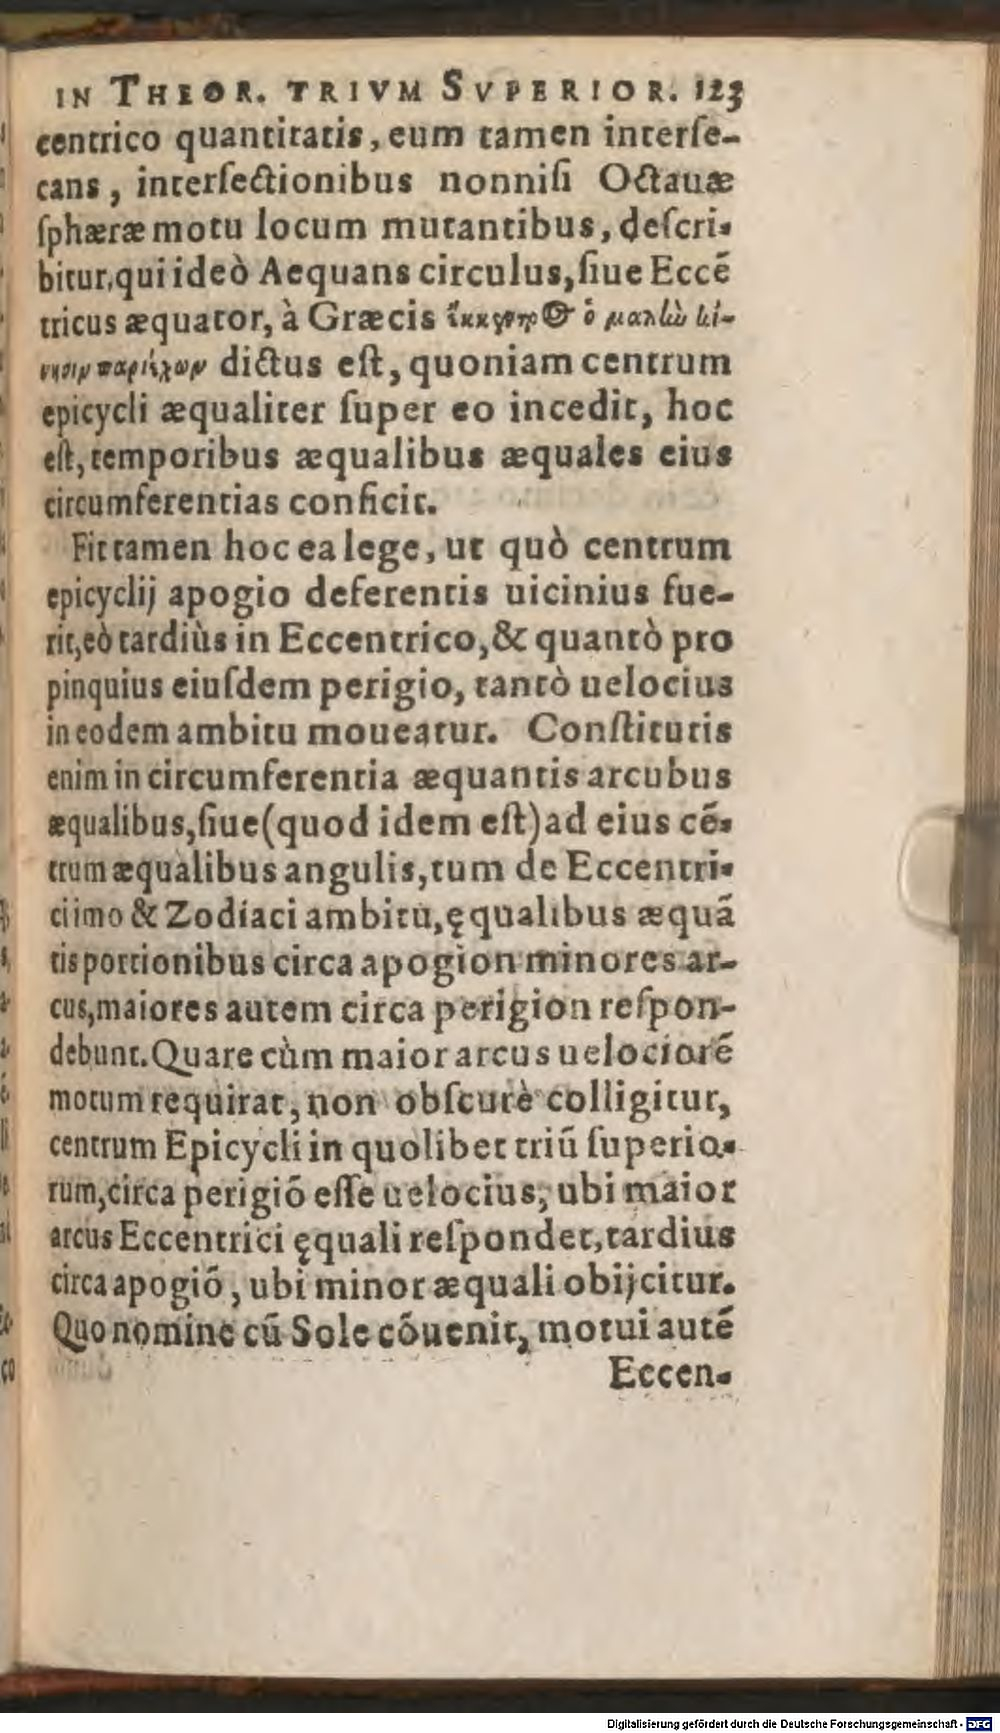 IN THEOR. TRIVM SVPERIOR. 123
centrico quantitatis, eum tamen interſe-
cans, interſectionibus nonniſi Octauæ
ſphæræ motu locum mutantibus, deſcri-
bitur, qui ideò Aequans circulus, ſiue Eccē
tricus æquator, à Græcis ὁ
dictus eſt, quoniam centrum
epicycli æqualiter ſuper eo incedit, hoc
eſt, temporibus æqualibus æquales eius
circumferentias conficit.
Fit tamen hoc ea lege, ut quò centrum
epicyclij apogio deferentis uicinius fue-
rit, eò tardiùs in Eccentrico, & quantò pro
pinquius eiuſdem perigio, tantò uelocius
in eodem ambitu moueatur. Conſtitutis
enim in circumferentia æquantis arcubus
æqualibus, ſiue (quod idem eſt) ad eius cē-
trum æqualibus angulis, tum de Eccentri-
ci imo & Zodiaci ambitu, ęqualibus æquā
tis portionibus circa apogion minores ar-
cus, maiores autem circa perigion reſpon-
debunt. Quare cùm maior arcus uelociorē
motum requirat, non obſcurè colligitur,
centrum Epicycli in quolibet triū ſuperio-
rum, circa perigiō eſſe uelocius, ubi maior
arcus Eccentrici ęquali reſpondet, tardius
circa apogiō, ubi minor æquali obijcitur.
Quo nomine cū Sole cōuenit, motui autē
Eccen-
Digitalisierung gefördert durch die Deutsche Forschungsgemeinschaft - DFG